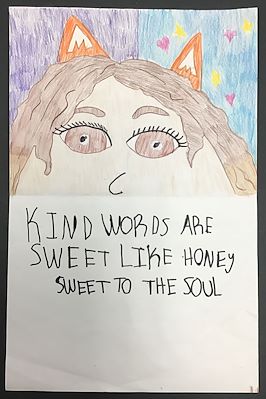 KIND WORDS ARE
SWEET LIKE HONEY
SWEET TO THE SOUL